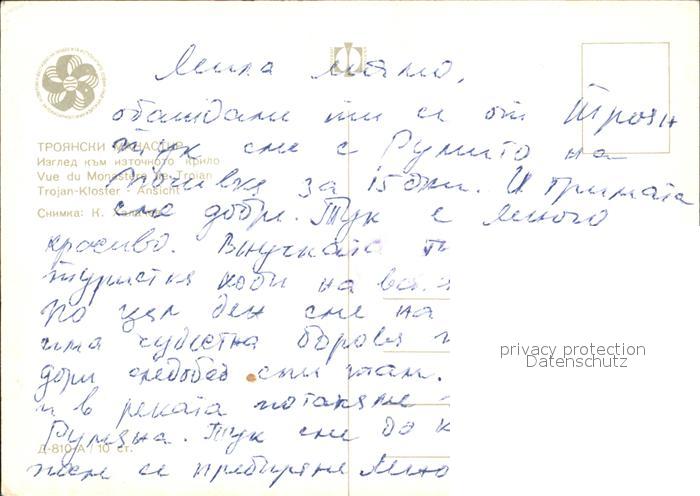 Мила мамо,
обаждаме ти се от Троян
Тук сме с Румито на
почивка за 15 дни. И тримата
сме добре. Тук е много
красиво. Внучката
туристка ходи на
по цял ден сме на
има чудестна борова
дори следобед сми там.
и в реката
Румяна. Тук сме до
се
ТРОЯНСКИ МАНАСТИР
Изглед към източното крило
Vue du Monastère de Trojan
Trojan-Kloster - Ansicht
Снимка: К.
Д-810-А / 10 ст.
privacy protection
Datenschutz